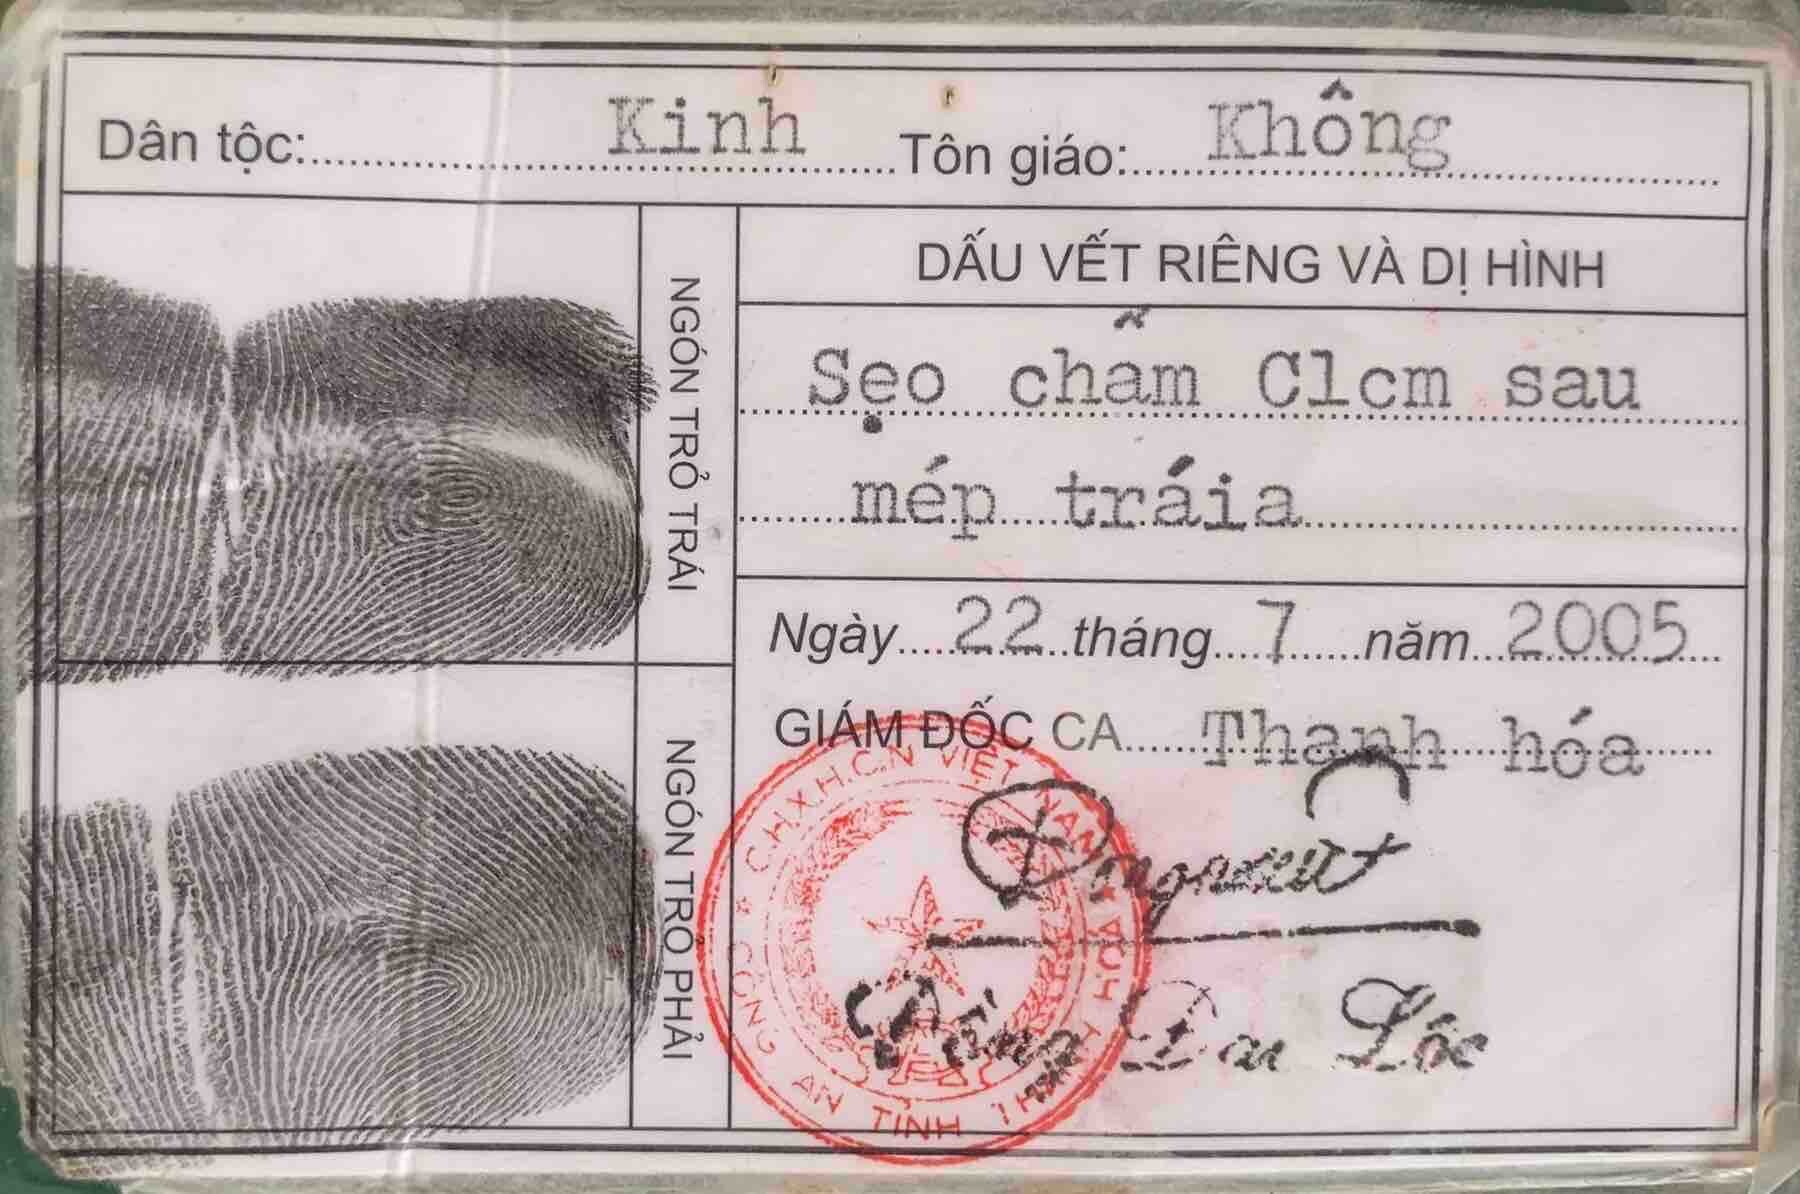 Dân tộc: Kinh Tôn giáo: Không
NGÓN TRỎ TRÁI
NGÓN TRỎ PHẢI
DẤU VẾT RIÊNG VÀ DỊ HÌNH
Sẹo chấm C1cm sau
mép tráia
Ngày 22 tháng 7 năm 2005
GIÁM ĐỐC CA Thanh hóa
C.H.X.H.C.N VIỆT NAM
CÔNG AN TỈNH THANH HOÁ
Đồng Đại Lộc